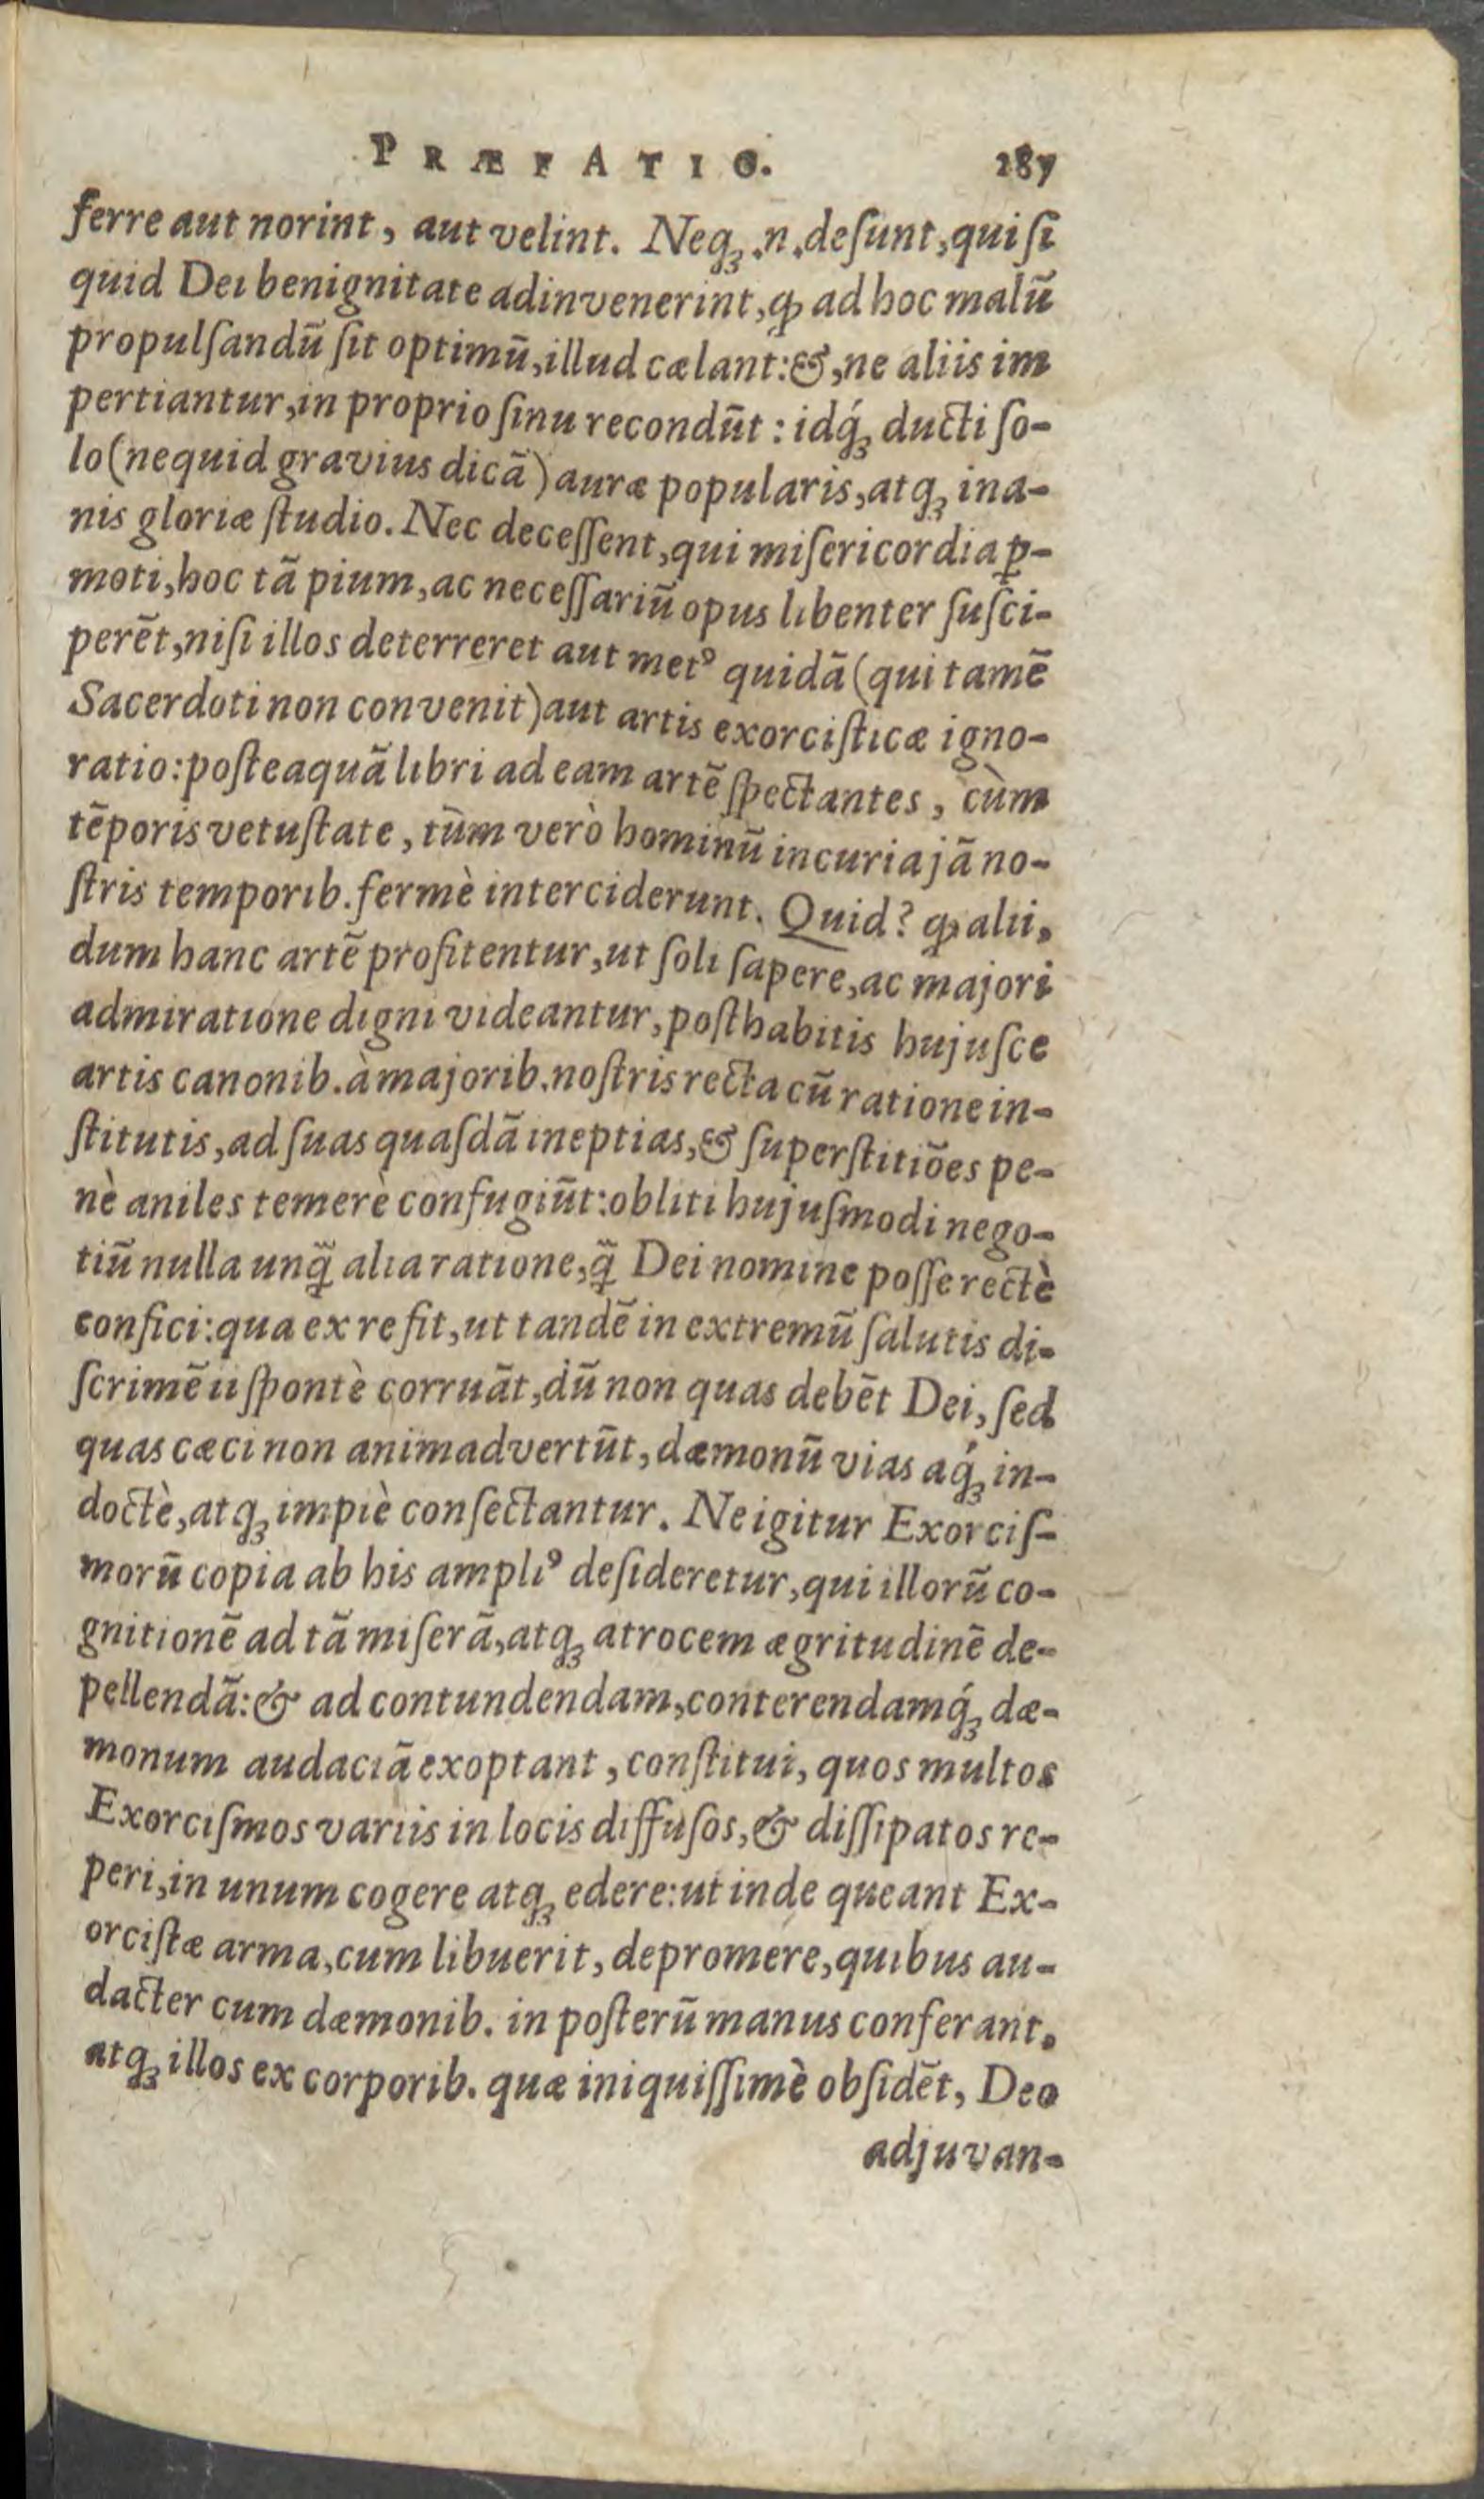 PRÆFATIO. 287
ferre aut norint, aut velint. Neqꝫ .n. deſunt, qui ſi
quid Dei benignitate adinvenerint, ꝙ ad hoc malũ
propulſandũ ſit optimũ, illud cælant: &, ne aliis im
pertiantur, in proprio ſinu recondũt: idq́ꝫ ducti ſo-
lo (nequid gravius dicã) auræ popularis, atqꝫ ina-
nis gloriæ ſtudio. Nec deceſſent, qui miſericordia ꝑ-
moti, hoc tã pium, ac neceſſariũ opus libenter ſuſci-
perẽt, niſi illos deterreret aut metꝰ quidã (qui tamẽ
Sacerdoti non convenit) aut artis exorciſticæ igno-
ratio: poſteaquã libri ad eam artẽ ſpectantes, cùm
tẽporis vetuſtate, tùm verò hominũ incuria jã no-
ſtris temporib. fermè interciderunt. Quid? ꝙ alii,
dum hanc artẽ profitentur, ut ſoli ſapere, ac majori
admiratione digni videantur, poſthabitis hujuſce
artis canonib. à majorib. noſtris recta cũ ratione in-
ſtitutis, ad ſuas quaſdã ineptias, & ſuperſtitiões pe-
nè aniles temerè confugiũt: obliti hujuſmodi nego-
tiũ nulla unq̃ alia ratione, q̃ Dei nomine poſſe rectè
confici: qua ex re fit, ut tandẽ in extremũ ſalutis di-
ſcrimẽ ii ſpontè corruãt, dũ non quas debẽt Dei, ſed
quas cæci non animadvertũt, dæmonũ vias aq́ꝫ in-
doctè, atqꝫ impiè conſectantur. Ne igitur Exorciſ-
morũ copia ab his ampliꝰ deſideretur, qui illorũ co-
gnitionẽ ad tã miſerã, atqꝫ atrocem ægritudinẽ de-
pellendã: & ad contundendam, conterendamq́ꝫ dæ-
monum audaciã exoptant, conſtitui, quos multos
Exorciſmos variis in locis diffuſos, & diſſipatos re-
peri, in unum cogere atqꝫ edere: ut inde queant Ex-
orciſtæ arma, cum libuerit, depromere, quibus au-
dacter cum dæmonib. in poſterũ manus conferant,
atqꝫ illos ex corporib. quæ iniquiſſimè obſidẽt, Deo
adjuvan-